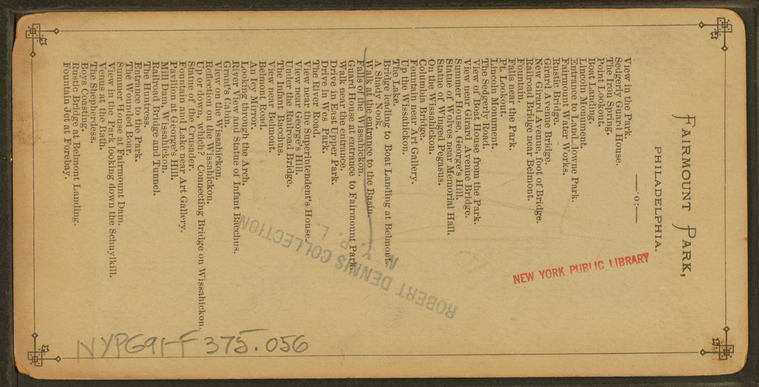 FAIRMOUNT PARK,
PHILADELPHIA.
—:o:—
View in the Park.
Sedgely Guard House.
The Iron Spring.
Point Lookout.
Boat Landing.
Lincoln Monument.
Entrance to Landsdowne Park.
Fairmount Water Works.
Rustic Bridge.
Girard Avenue Bridge.
New Girard Avenue, foot of Bridge.
Railroad Bridge near Belmont.
Fountain.
Falls near the Park.
Pt. Lookout.
Lincoln Monument.
The Sedgerly Road.
View of Boat House from the Park.
View near Girard Avenue Bridge.
Summer House, George's Hill.
Statuary near Memorial Hall.
Statue of Winged Pegasus.
On the Wissahickon.
Columbia Bridge.
Up the Wissahickon.
Fountain near Art Gallery.
The Lake.
Bridge leading to Boat Landing at Belmont.
A Shady Nook.
Walk in the entrance to the Basin.
Falls of the Wissahickon.
Guard House at entrance to Fairmount Park.
Walk near the entrance.
Drive in East Upper Park.
Drive in Loves Park.
The River Road.
View near the Superintendent's House.
View near George's Hill.
Under the Railroad Bridge.
The Infant Bacchus.
View near Belmont.
Belmont Road.
An Icy Mirror.
Looking through the Arch.
River View and Statue of Infant Bacchus.
Grant's Cabin.
View on the Wissahickon.
Reflection on the Wissahickon.
Up or down which? Connecting Bridge on Wissahickon.
Statue of the Crusader.
Fountain and Flowers near Art Gallery.
Pavilion at George's Hill.
Mill Dam, Wissahickon.
Railroad Bridge and Tunnel.
The Huntress.
Entrance to the Park.
The Wounded Bear.
Summer House at Fairmount Dam.
View in the Park looking down the Schuylkill.
Venus at the Bath.
The Shepherdess.
Boys Coasting.
Rustic Bridge at Belmont Landing.
Fountain Jet at Forebay.
NEW YORK PUBLIC LIBRARY
ROBERT DENNIS COLLECTION
N. Y. P. L.
NYPG91-F375.056